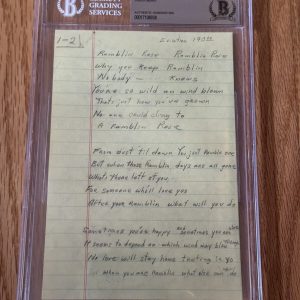 GRADING
SERVICES
BECKETT
1-2
Ramblin Rose Ramblin Rose
Why you Keep Ramblin
Nobody - Knows
You're so wild an wind blown
Thats just how you've grown
No one could cling to
A Ramblin Rose
From dust til dawn You just ramble on
But when those Ramblin days are all gone
Whats left of you
For someone who'll love you
After your Ramblin what will you do
Sometimes you're happy sometimes you are
It seems to depend on which wind may blow
No love will stay home
when you are Ramblin what else can